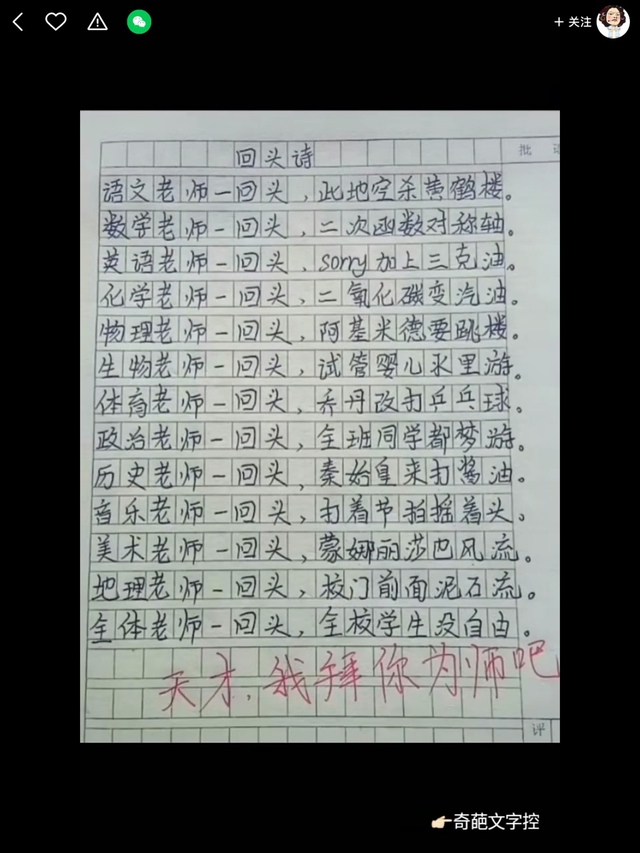 + 关注
批
回头诗
语文老师一回头,此地空杀黄鹤楼。
数学老师一回头,二次函数对称轴。
英语老师一回头,sorry加上三克油。
化学老师一回头,二氧化碳变汽油。
物理老师一回头,阿基米德要跳楼。
生物老师一回头,试管婴儿水里游。
体育老师一回头,乔丹改打乒乓球。
政治老师一回头,全班同学都梦游。
历史老师一回头,秦始皇来打酱油。
音乐老师一回头,打着节拍摇着头。
美术老师一回头,蒙娜丽莎巴风流。
地理老师一回头,校门前面泥石流。
全体老师一回头,全校学生没自由。
天才,我拜你为师吧
评
👉🏻奇葩文字控